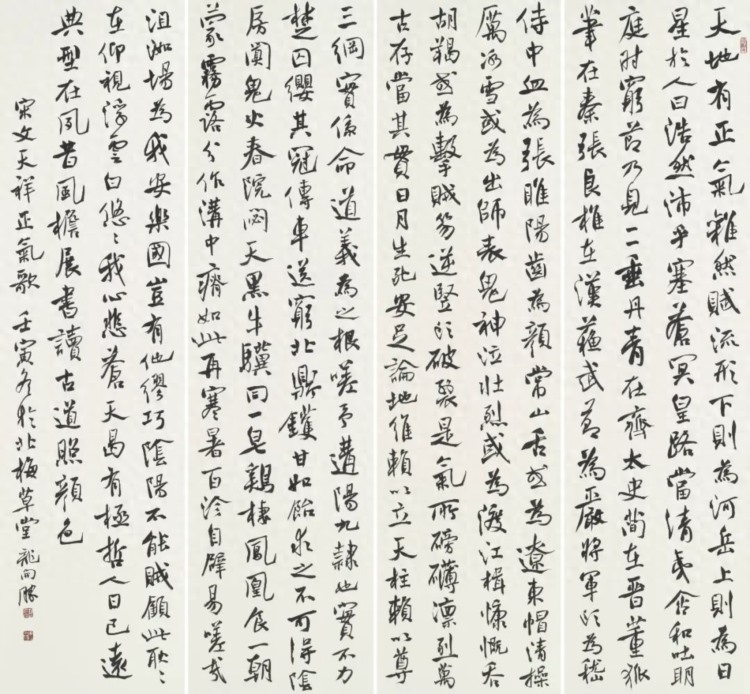 天地有正氣雜然賦流形下則為河岳上則為日
星於人曰浩然沛乎塞蒼冥皇路當清夷含和吐明
庭時窮節乃見一一垂丹青在齊太史簡在晉董狐
筆在秦張良椎在漢蘇武節為嚴將軍頭為嵇
侍中血為張睢陽齒為顏常山舌或為遼東帽清操
厲冰雪或為出師表鬼神泣壯烈或為渡江楫慷慨吞
胡羯或為擊賊笏逆豎頭破裂是氣所磅礴凜烈萬
古存當其貫日月生死安足論地維賴以立天柱賴以尊
三綱實係命道義為之根嗟予遘陽九隸也實不力
楚囚纓其冠傳車送窮北鼎鑊甘如飴求之不可得陰
房闃鬼火春院閟天黑牛驥同一皂鷄棲鳳凰食一朝
蒙霧露分作溝中瘠如此再寒暑百沴自辟易嗟哉
沮洳場為我安樂國豈有他繆巧陰陽不能賊顧此耿〻
在仰視浮雲白悠〻我心悲蒼天曷有極哲人日已遠
典型在夙昔風檐展書讀古道照顏色
宋文天祥正氣歌 壬寅冬於北梅草堂龍向勝